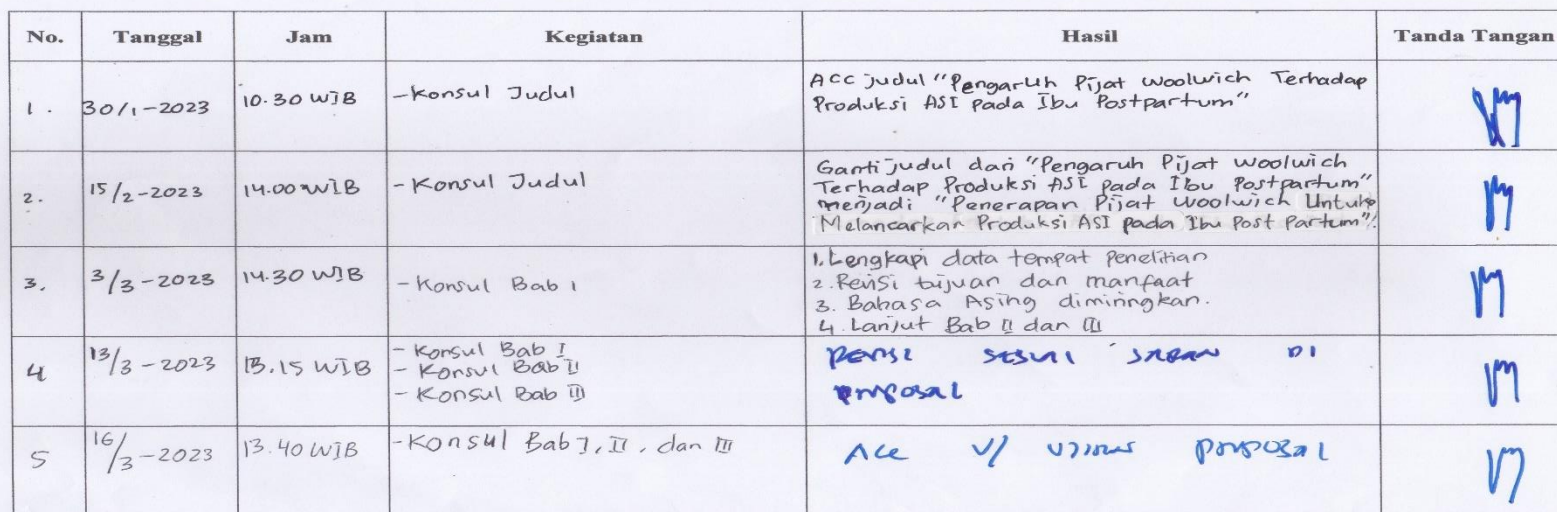 No. Tanggal Jam Kegiatan Hasil Tanda Tangan
1. 30/1-2023 10.30 WIB -Konsul Judul
ACC judul "Pengaruh Pijat Woolwich Terhadap
Produksi ASI pada Ibu Postpartum"
2. 15/2-2023 14.00 WIB - Konsul Judul
Ganti judul dari "Pengaruh Pijat Woolwich
Terhadap Produksi ASI pada Ibu Postpartum"
menjadi "Penerapan Pijat Woolwich Untuk
Melancarkan Produksi ASI pada Ibu Post Partum".
3. 3/3-2023 14.30 WIB - Konsul Bab 1
1. Lengkapi data tempat penelitian
2. Revisi tujuan dan manfaat
3. Bahasa Asing dimiringkan.
4. Lanjut Bab II dan III
4 13/3-2023 13.15 WIB
- Konsul Bab I
- Konsul Bab II
- Konsul Bab III
Revisi sesuai saran di
proposal
5 16/3-2023 13.40 WIB -Konsul Bab I, II, dan III
Acc u/ ujian proposal